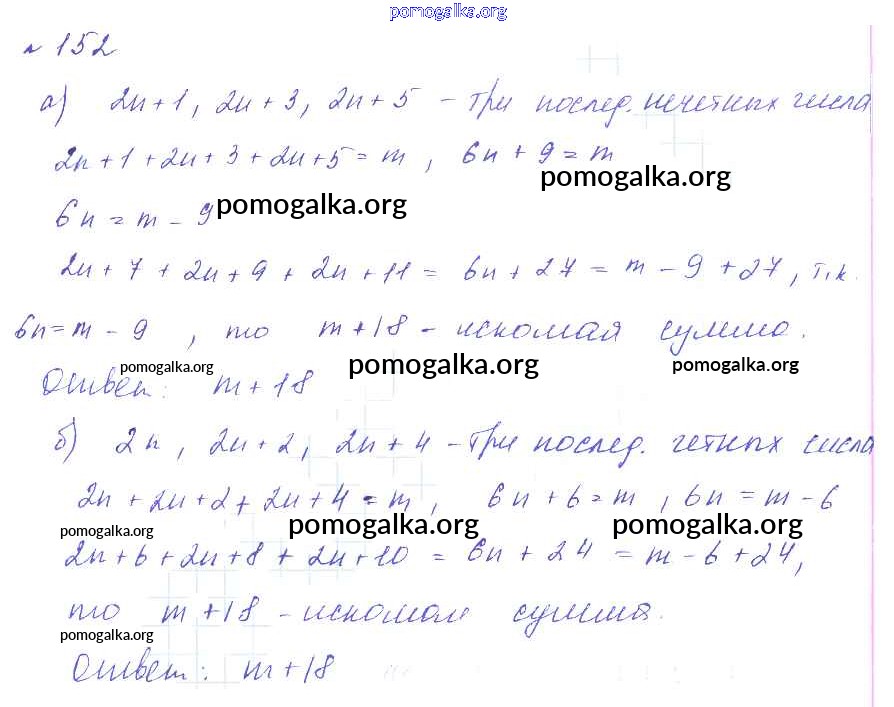 pomogalka.org
№ 152
а) 2n+1, 2n+3, 2n+5 - три послед. нечетных числа
2n+1+2n+3+2n+5=m, 6n+9=m
pomogalka.org
6n=m-9 pomogalka.org
2n+7+2n+9+2n+11=6n+27=m-9+27, т.к.
6n=m-9, то m+18 - искомая сумма.
pomogalka.org pomogalka.org pomogalka.org
Ответ: m+18
б) 2n, 2n+2, 2n+4 - три послед. четных числа
2n+2n+2+2n+4=m, 6n+6=m, 6n=m-6
pomogalka.org pomogalka.org pomogalka.org
2n+6+2n+8+2n+10=6n+24=m-6+24,
то m+18 - искомая сумма.
pomogalka.org
Ответ: m+18